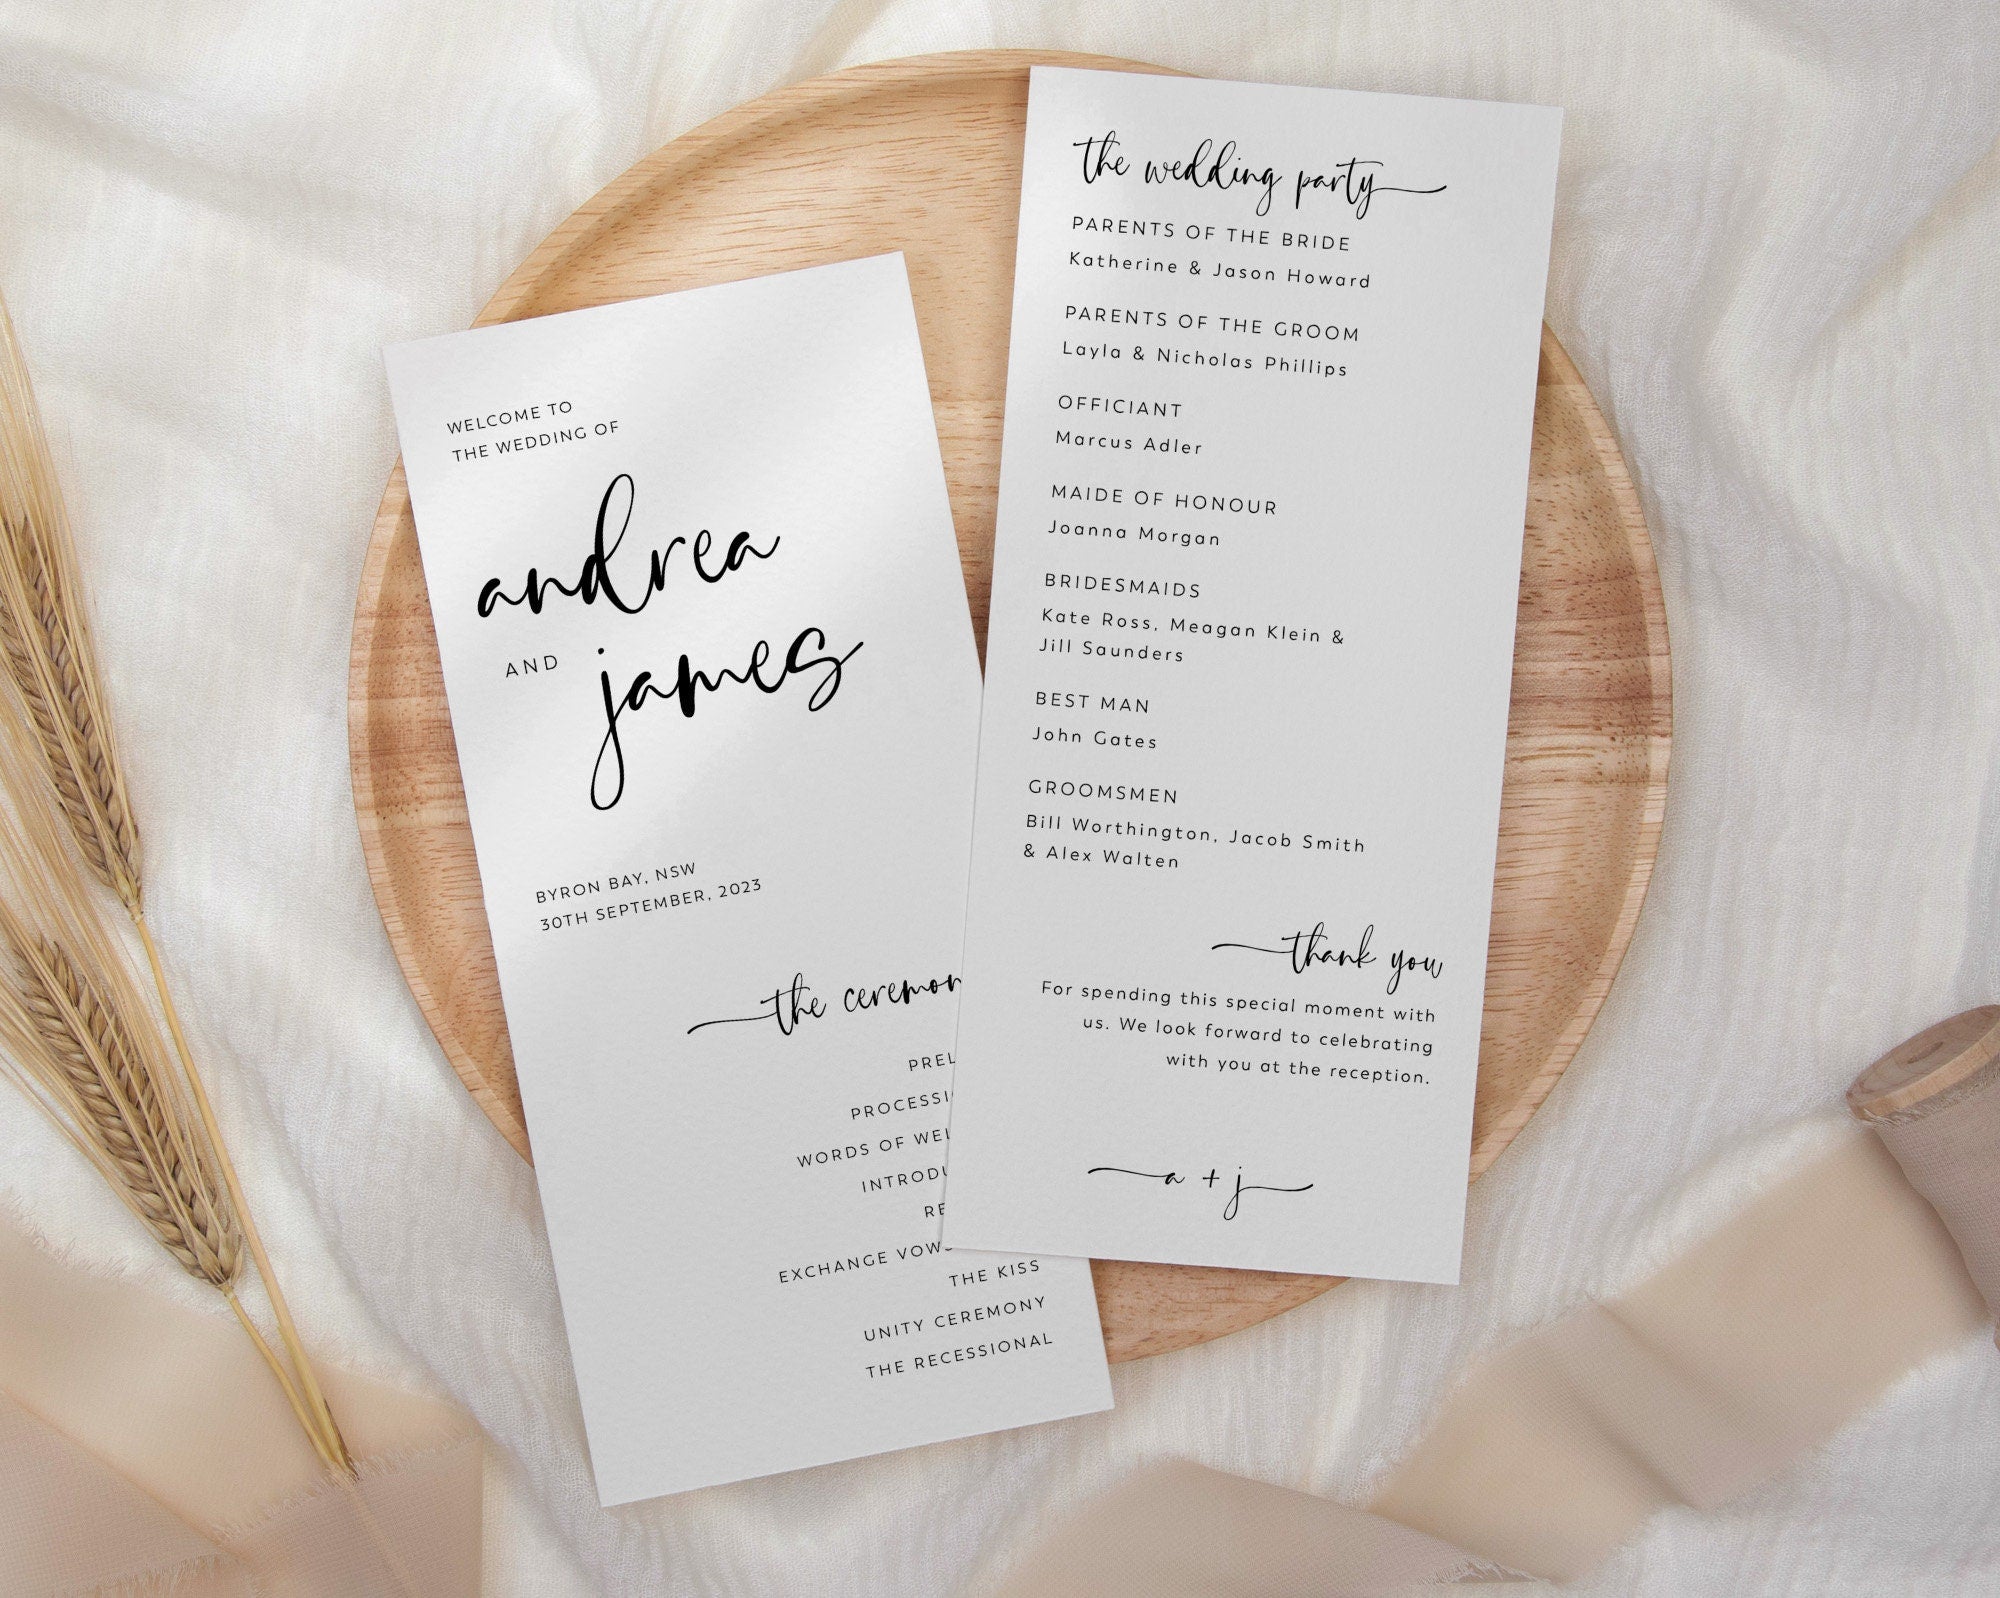 WELCOME TO
THE WEDDING OF
andrea
AND james
BYRON BAY, NSW
30TH SEPTEMBER, 2023
the
WORDS OF
EXCHANGE
THE KISS
UNITY CEREMONY
THE RECESSIONAL
the wedding party
PARENTS OF THE BRIDE
Katherine & Jason Howard
PARENTS OF THE GROOM
Layla & Nicholas Phillips
OFFICIANT
Marcus Adler
MAIDE OF HONOUR
Joanna Morgan
BRIDESMAIDS
Kate Ross, Meagan Klein &
Jill Saunders
BEST MAN
John Gates
GROOMSMEN
Bill Worthington, Jacob Smith
& Alex Walten
thank you
For spending this special moment with
us. We look forward to celebrating
with you at the reception.
a + j